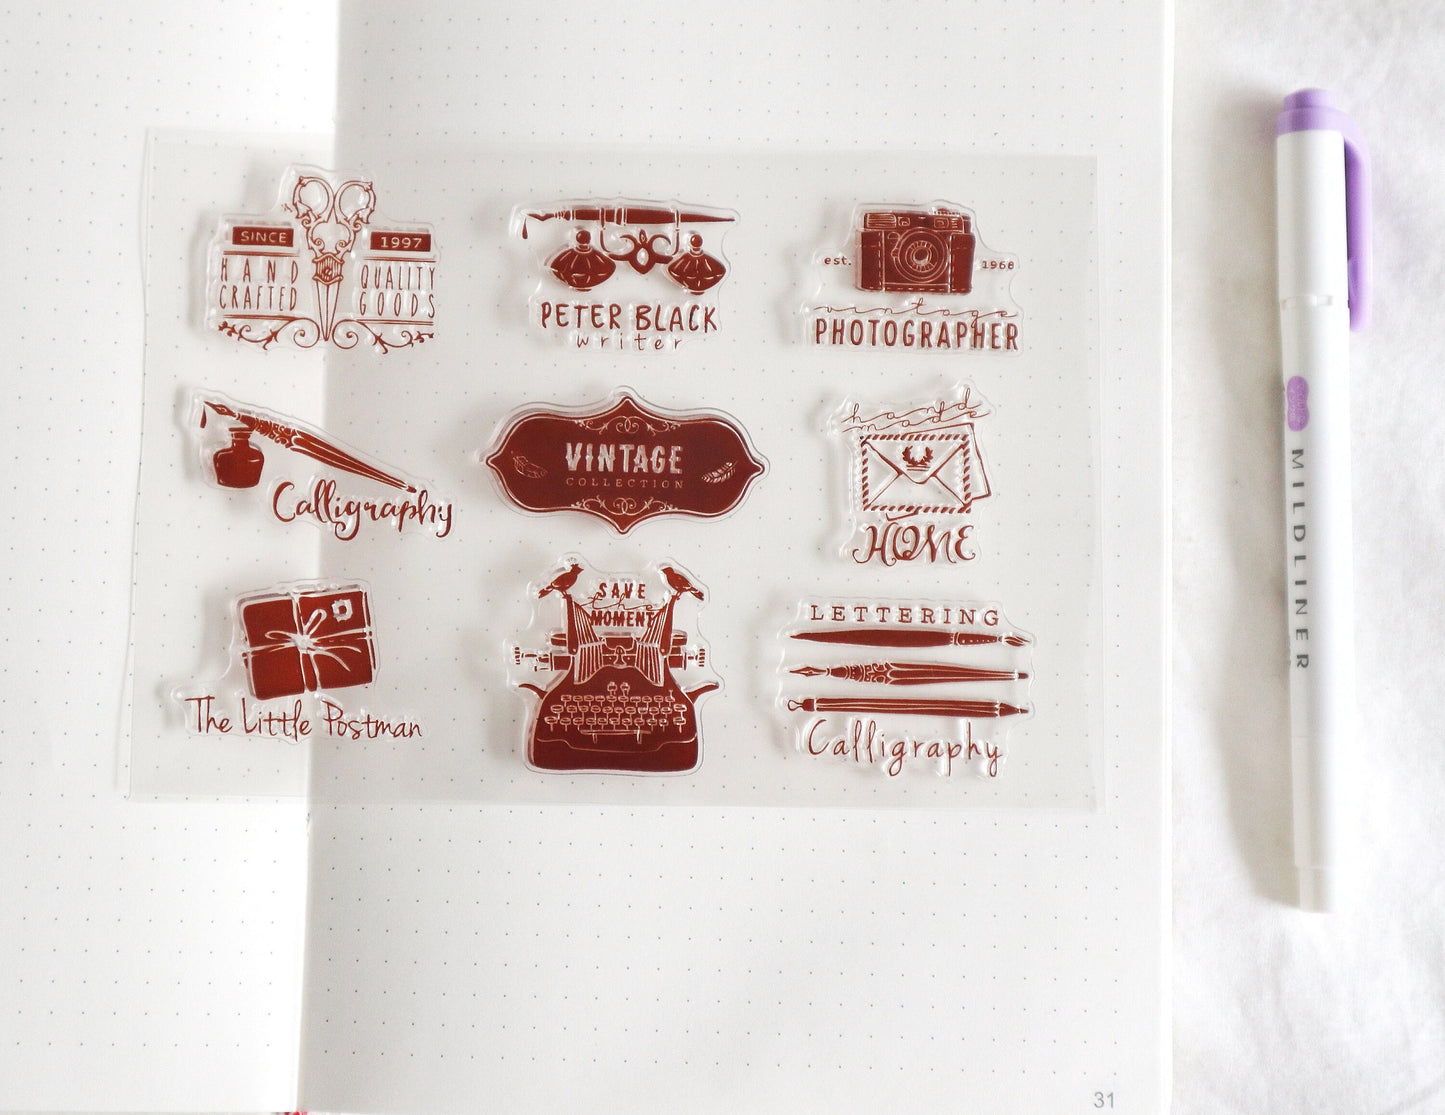 SINCE 1997
HAND QUALITY
CRAFTED GOODS
PETER BLACK
writer
est. 1968
vintage
PHOTOGRAPHER
Calligraphy
VINTAGE
COLLECTION
hand
made
HOME
The Little Postman
SAVE
the
MOMENT
LETTERING
Calligraphy
MILDLINER
31